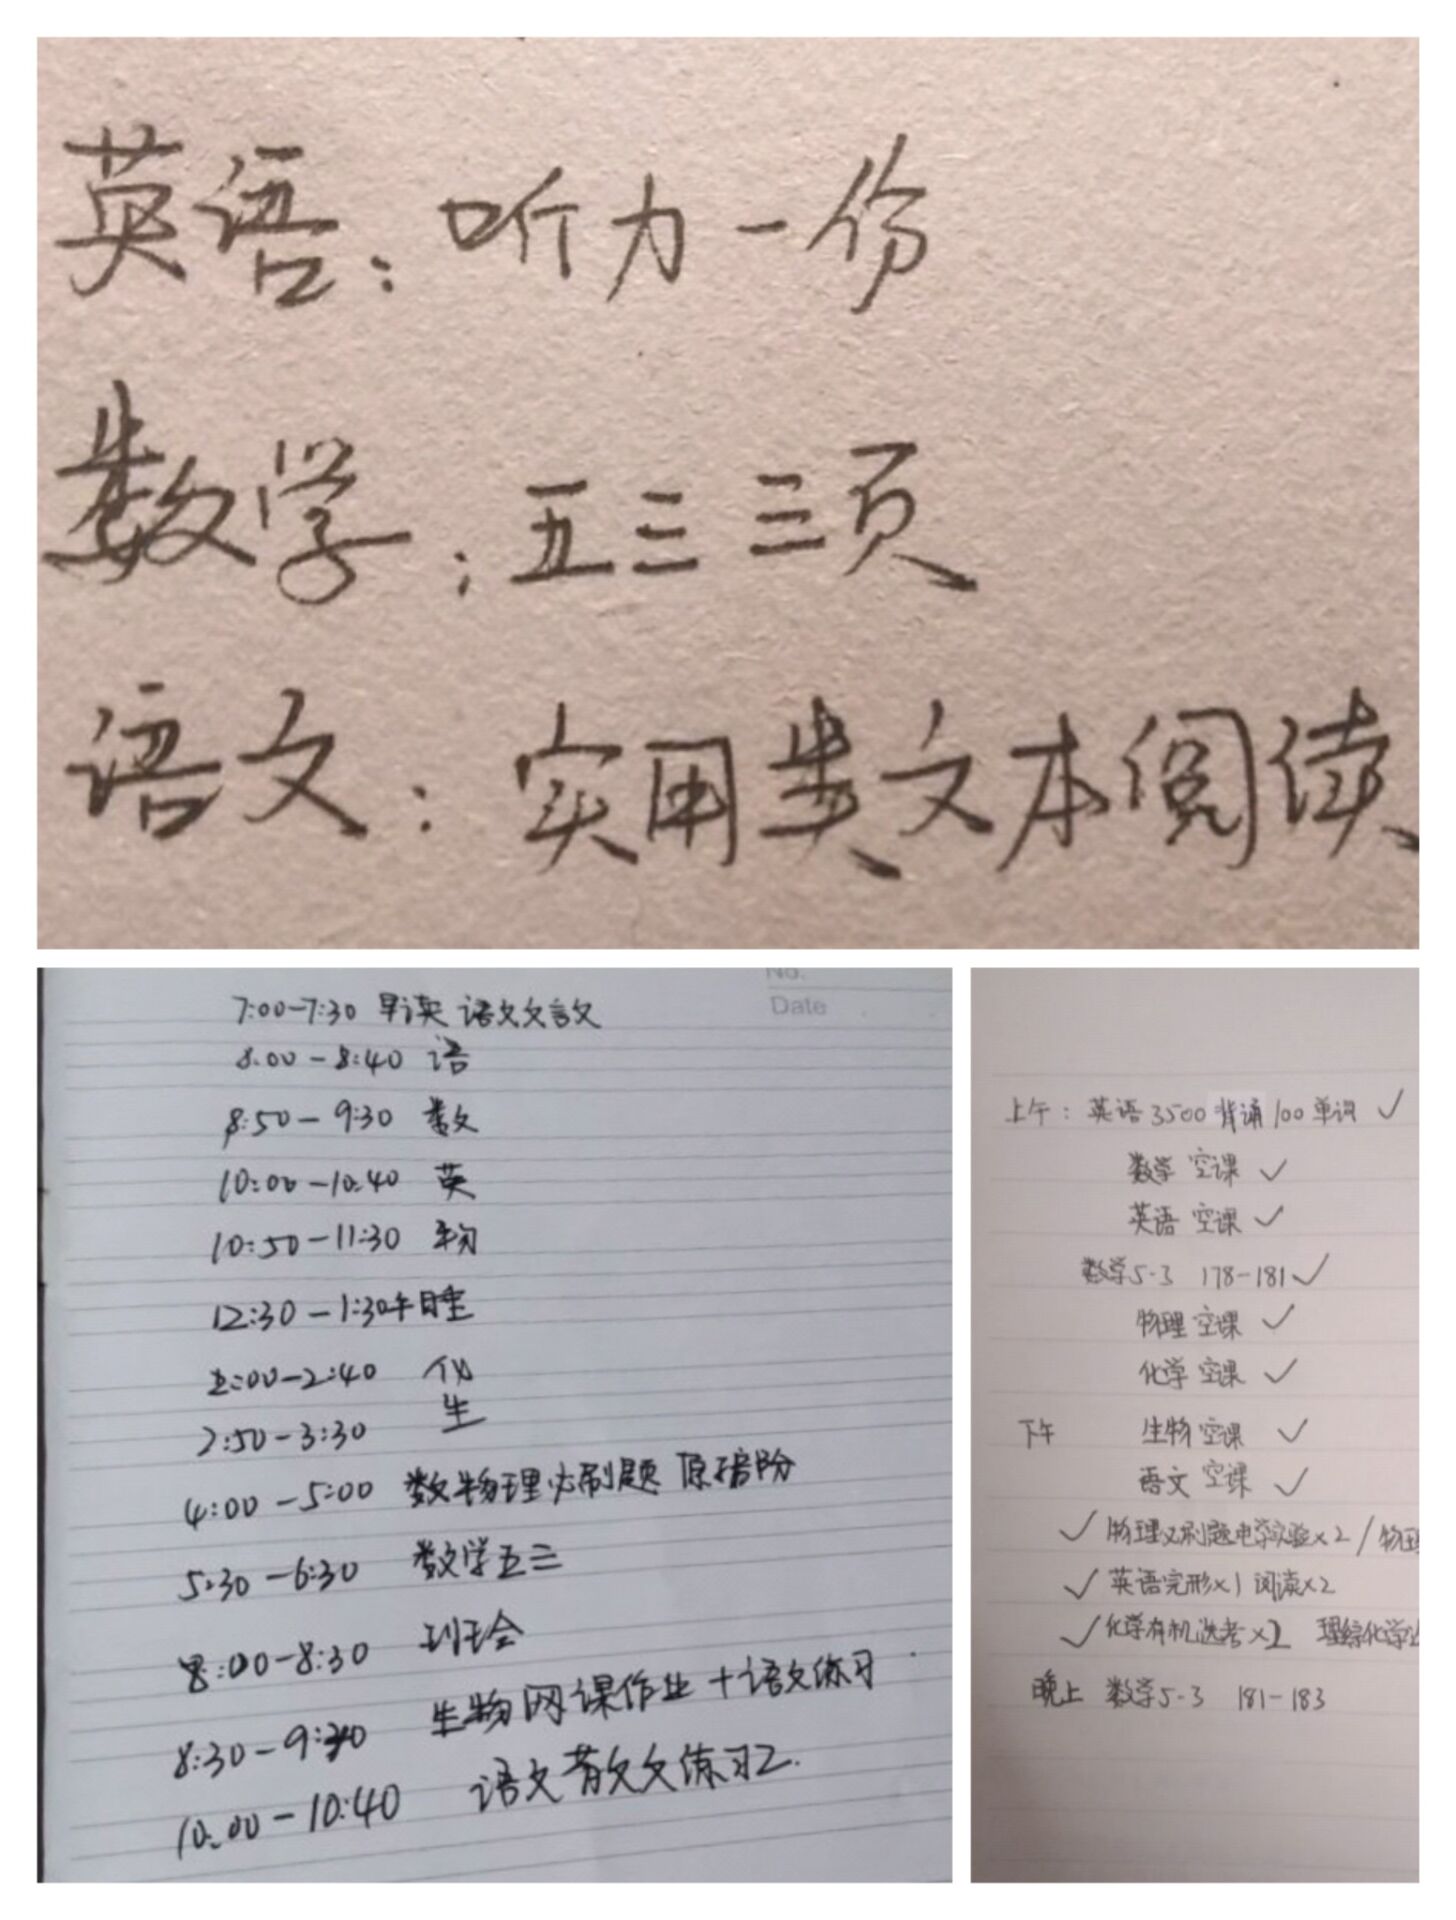 英语：听力一份
数学：五三 三页
语文：实用类文本阅读
No.
Date
7:00-7:30 早读 语文文言文
8:00-8:40 语
8:50-9:30 数
10:00-10:40 英
10:50-11:30 物
12:30-1:30午睡
2:00-2:40 化
2:50-3:30 生
4:00-5:00 数物理必刷题
5:30-6:30 数学五三
8:00-8:30 班会
8:30-9:30 生物网课作业+语文练习
10:00-10:40 语文散文文练习2.
上午：英语3500背诵100单词 ✓
数学 空课 ✓
英语 空课 ✓
数学5-3 178-181 ✓
物理 空课 ✓
化学 空课 ✓
下午 生物 空课 ✓
语文 空课 ✓
✓ 物理必刷题电学实验×2 / 物理
✓ 英语完形×1 阅读×2
✓ 化学有机选考×2 理综化学
晚上 数学5-3 181-183